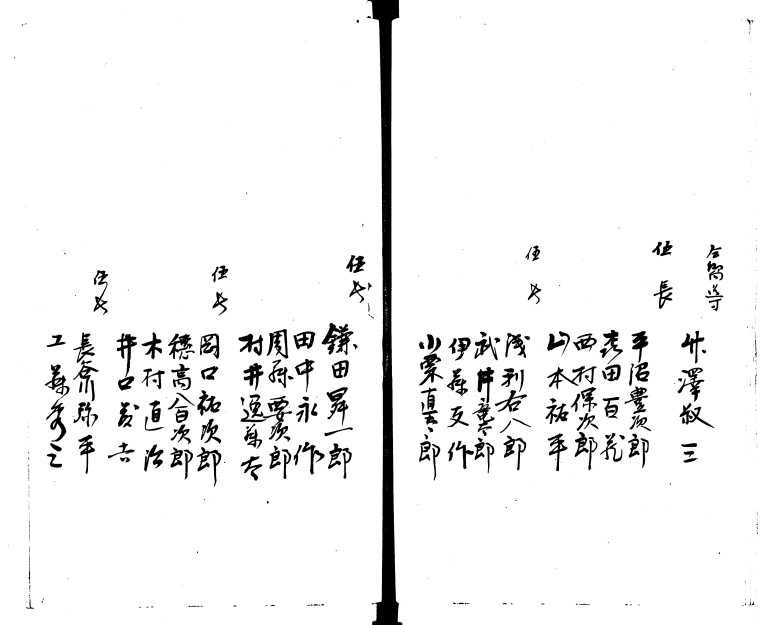 竹澤叔三
伍長
平沼豊次郎
喜田百蔵
西村保次郎
山本祐平
伍長
浅利右八郎
武井豊郎
伊藤又作
小栗直太郎
伍長
鎌田昇一郎
田中永作
周藤要次郎
村井逸太
伍長
岡口祐次郎
穂高八百次郎
木村直治
井口義吉
伍長
長倉弥平
工藤